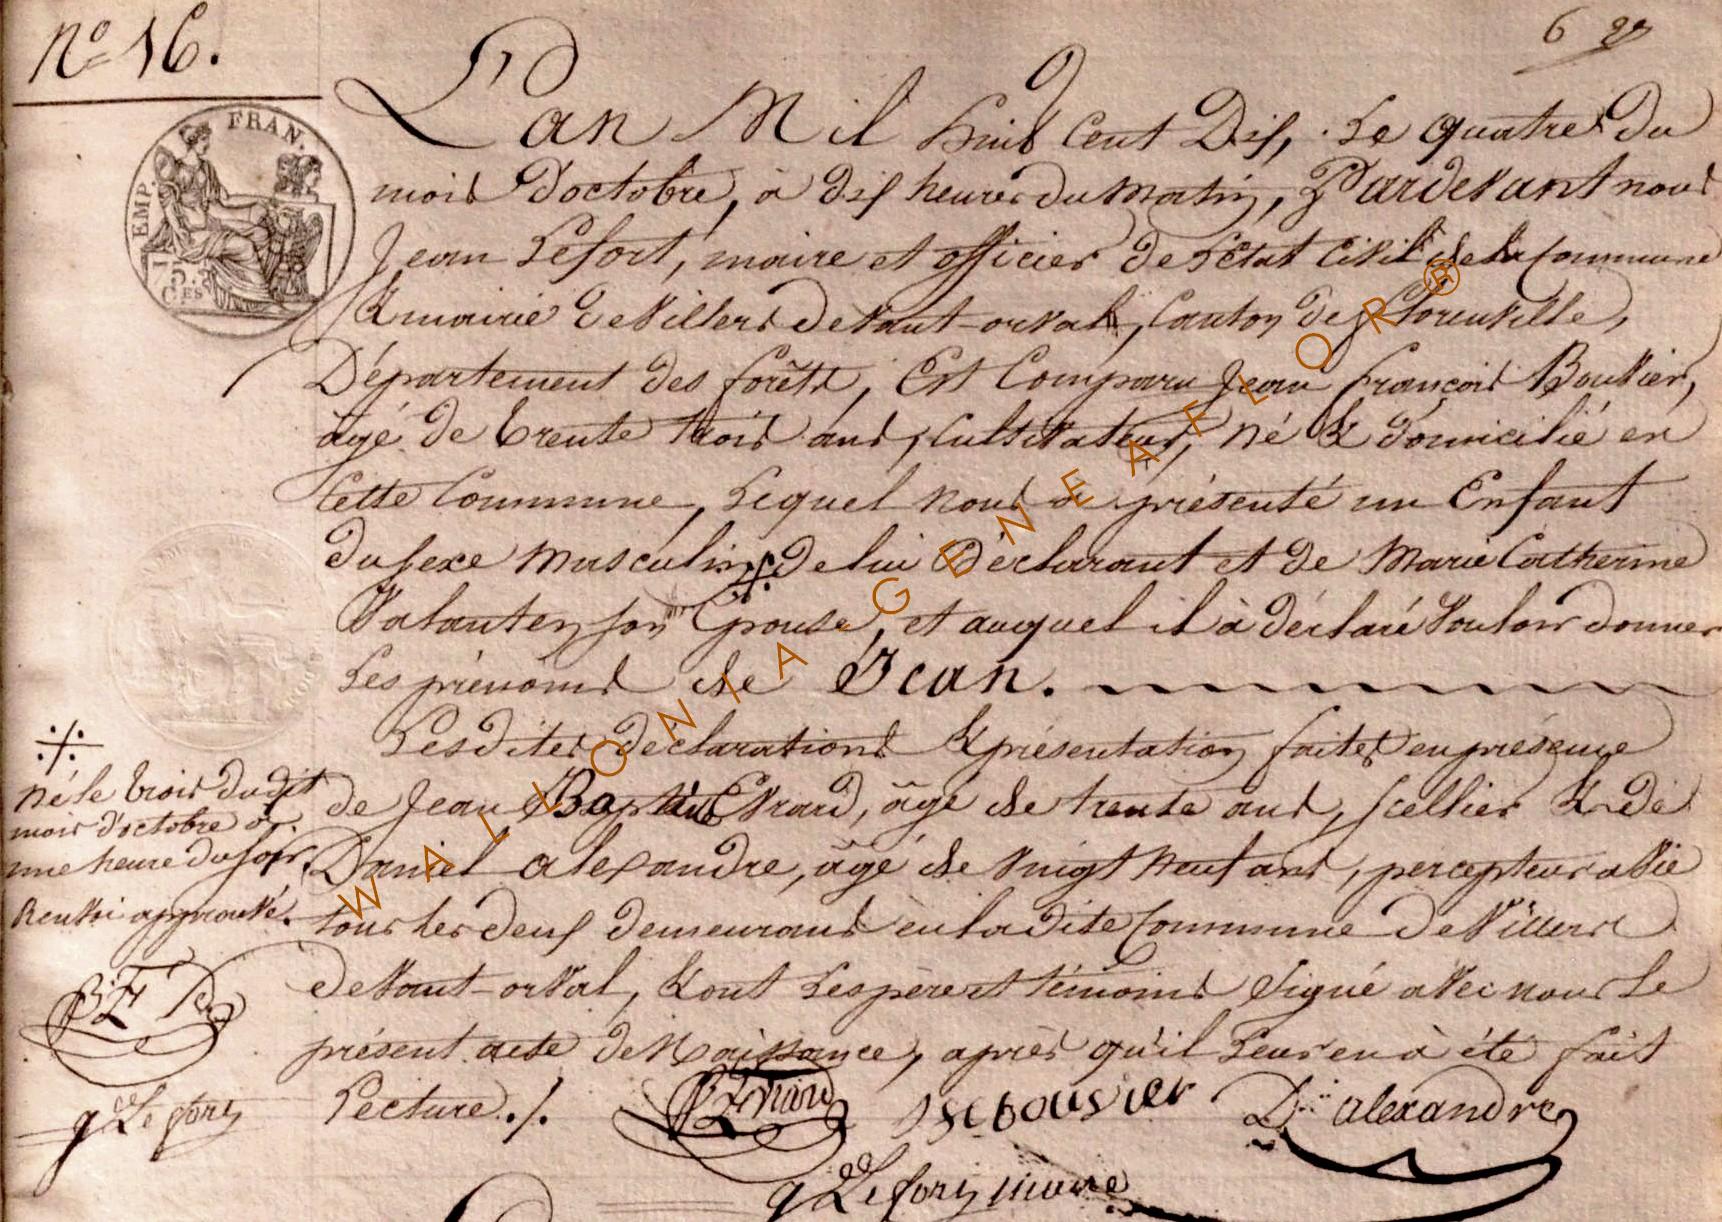 N° 16.
6
FRAN.
EMP.
5.
C.ES
L'an Mil huit Cent Dix, Le quatre du
mois d'octobre, à dix heures du matin, Pardevant nous
Jean Lefort, maire et officier de L'Etat Civil de la Commune
& mairie de Villers devant-orval, Canton de florenville,
Département des forêts, Est Comparu Jean françois Bouvier,
âgé de trente trois ans, Cultivateur, né & domicilié en
Cette Commune, Lequel nous a présenté un Enfant
du sexe masculin ⁜ de lui Déclarant et de Marie Catherine
Valanten son Epouse, et auquel il à déclaré Vouloir donner
Les prénoms de Jean.
Lesdites déclarations & présentation faites en présence
de Jean Baptiste Evrard, âgé de trente ans, scellier & de
Daniel alexandre, âgé de vingt neuf ans, percepteur à vie
tous les deux demeurans en ladite Commune de Villers
devant-orval, & ont Les père et témoins Signé avec nous Le
présent acte de Naissance, après qu'il Leur en à été fait
Lecture ./.
⁜
né le trois dudit
mois d'octobre à
une heure du soir.
Renvoi approuvé.
Lefort
Evrard
bouvier
D. alexandre
Lefort maire
WALLONIA GENEAFLOR®